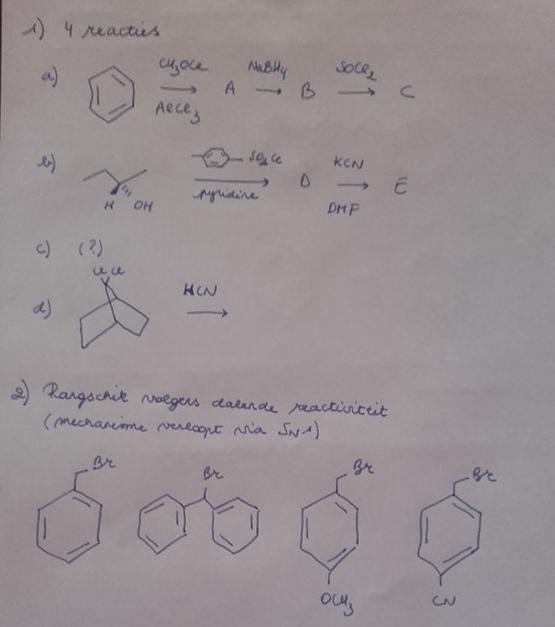 1) 4 reacties
a) CH3OCl NaBH4 SOCl2
→ A → B → C
AlCl3
b) SO2Cl KCN
→ D → E
pyridine DMF
H OH
c) (?)
Cl Cl
d) HCN
2) Rangschik volgens dalende reactiviteit
(mechanisme verloopt via SN1)
Br Br Br Br
OCH3 CN